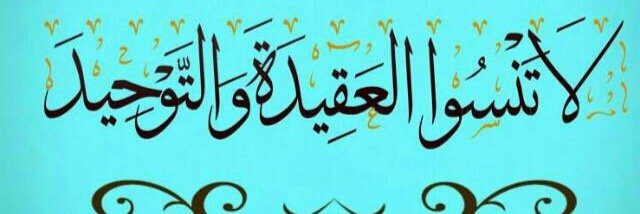 لَا تَنْسُوا العَقِيدَةَ وَالتَّوْحِيدَ